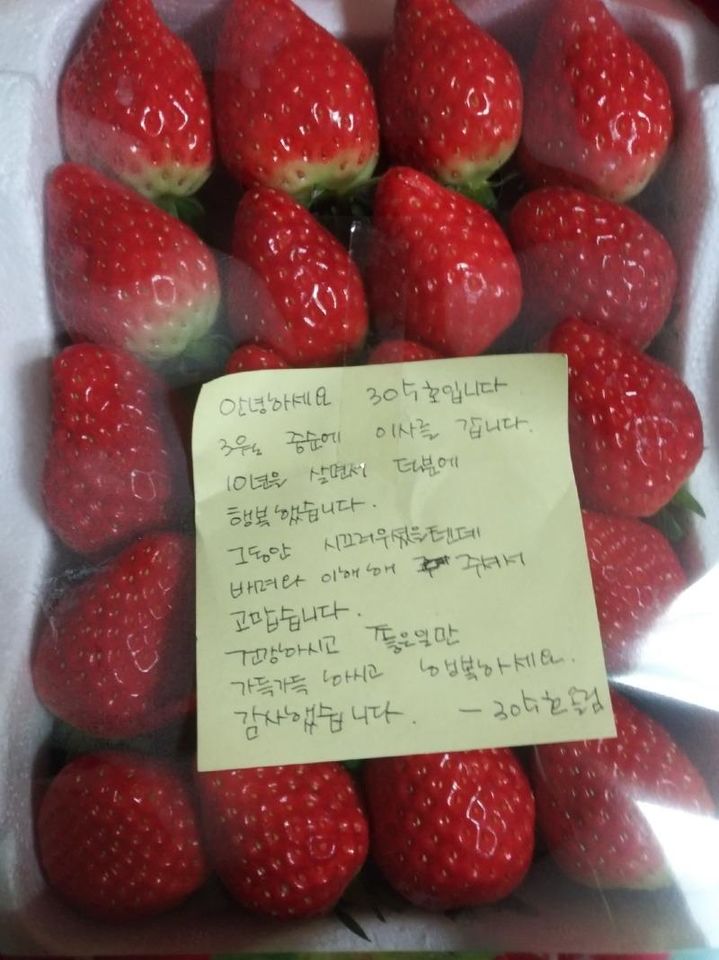 안녕하세요 305호입니다
3월 중순에 이사를 갑니다.
10년을 살면서 덕분에
행복했습니다.
그동안 시끄러우셨을텐데
배려와 이해해 주셔서
고맙습니다.
건강하시고 좋은일만
가득가득 하시고 행복하세요.
감사했습니다. - 305호올림